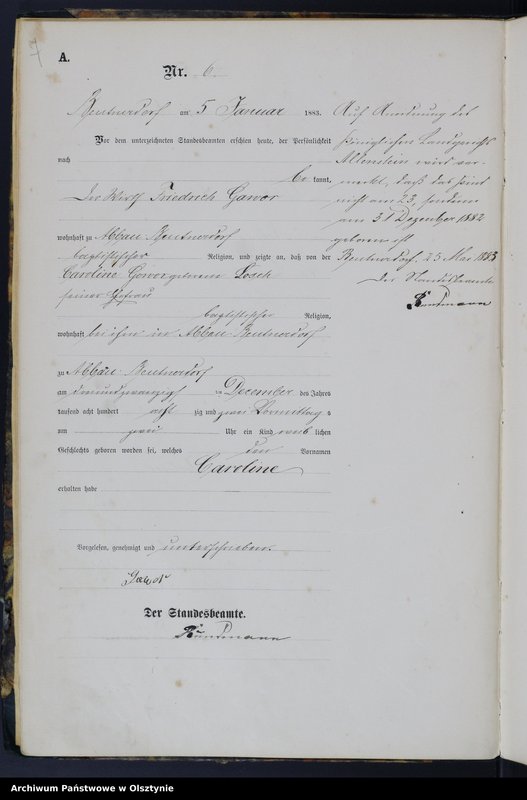 7
A.
Nr. 6.
Beutnerdorf am 5 Januar 1883.
Vor dem unterzeichneten Standesbeamten erschien heute, der Persönlichkeit
nach
be kannt,
der Wirth Friedrich Gawor
wohnhaft zu Abbau Beutnerdorf
baptistischer Religion, und zeigte an, daß von der
Caroline Gawor geborenen Losch
seiner Ehefrau
baptistischer Religion,
wohnhaft bei ihm in Abbau Beutnerdorf
zu Abbau Beutnerdorf
am dreiundzwanzigsten December des Jahres
tausend acht hundert acht zig und zwei Vormittags
um zwei Uhr ein Kind weib lichen
Geschlechts geboren worden sei, welches den Vornamen
Caroline
erhalten habe
Vorgelesen, genehmigt und unterschrieben.
Gawor
Der Standesbeamte.
Auf Anordnung des
Königlichen Landgerichts
Allenstein wird ver-
merkt, daß das Kind
nicht am 23, sondern
am 31 Dezember 1882
geboren ist
Beutnerdorf, 25 Mai 1883
Der Standesbeamte
Archiwum Państwowe w Olsztynie